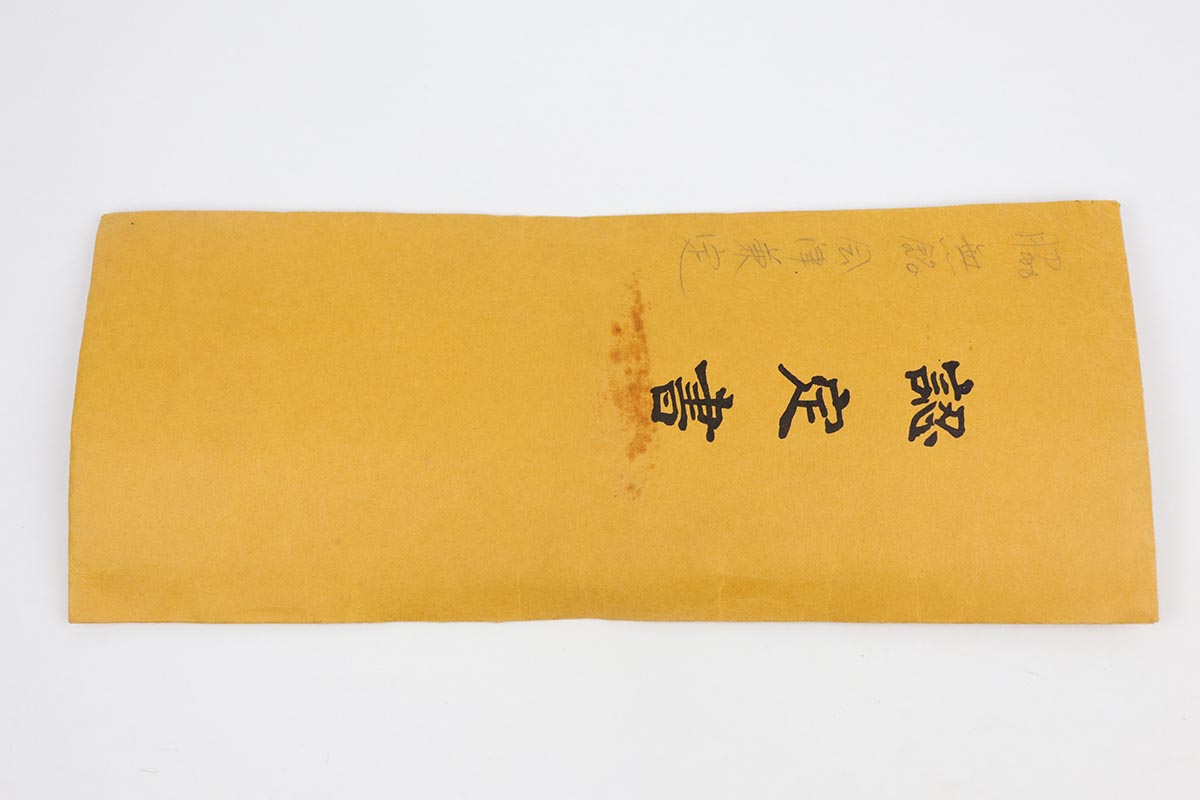 認定書
脇 無銘 会津兼定